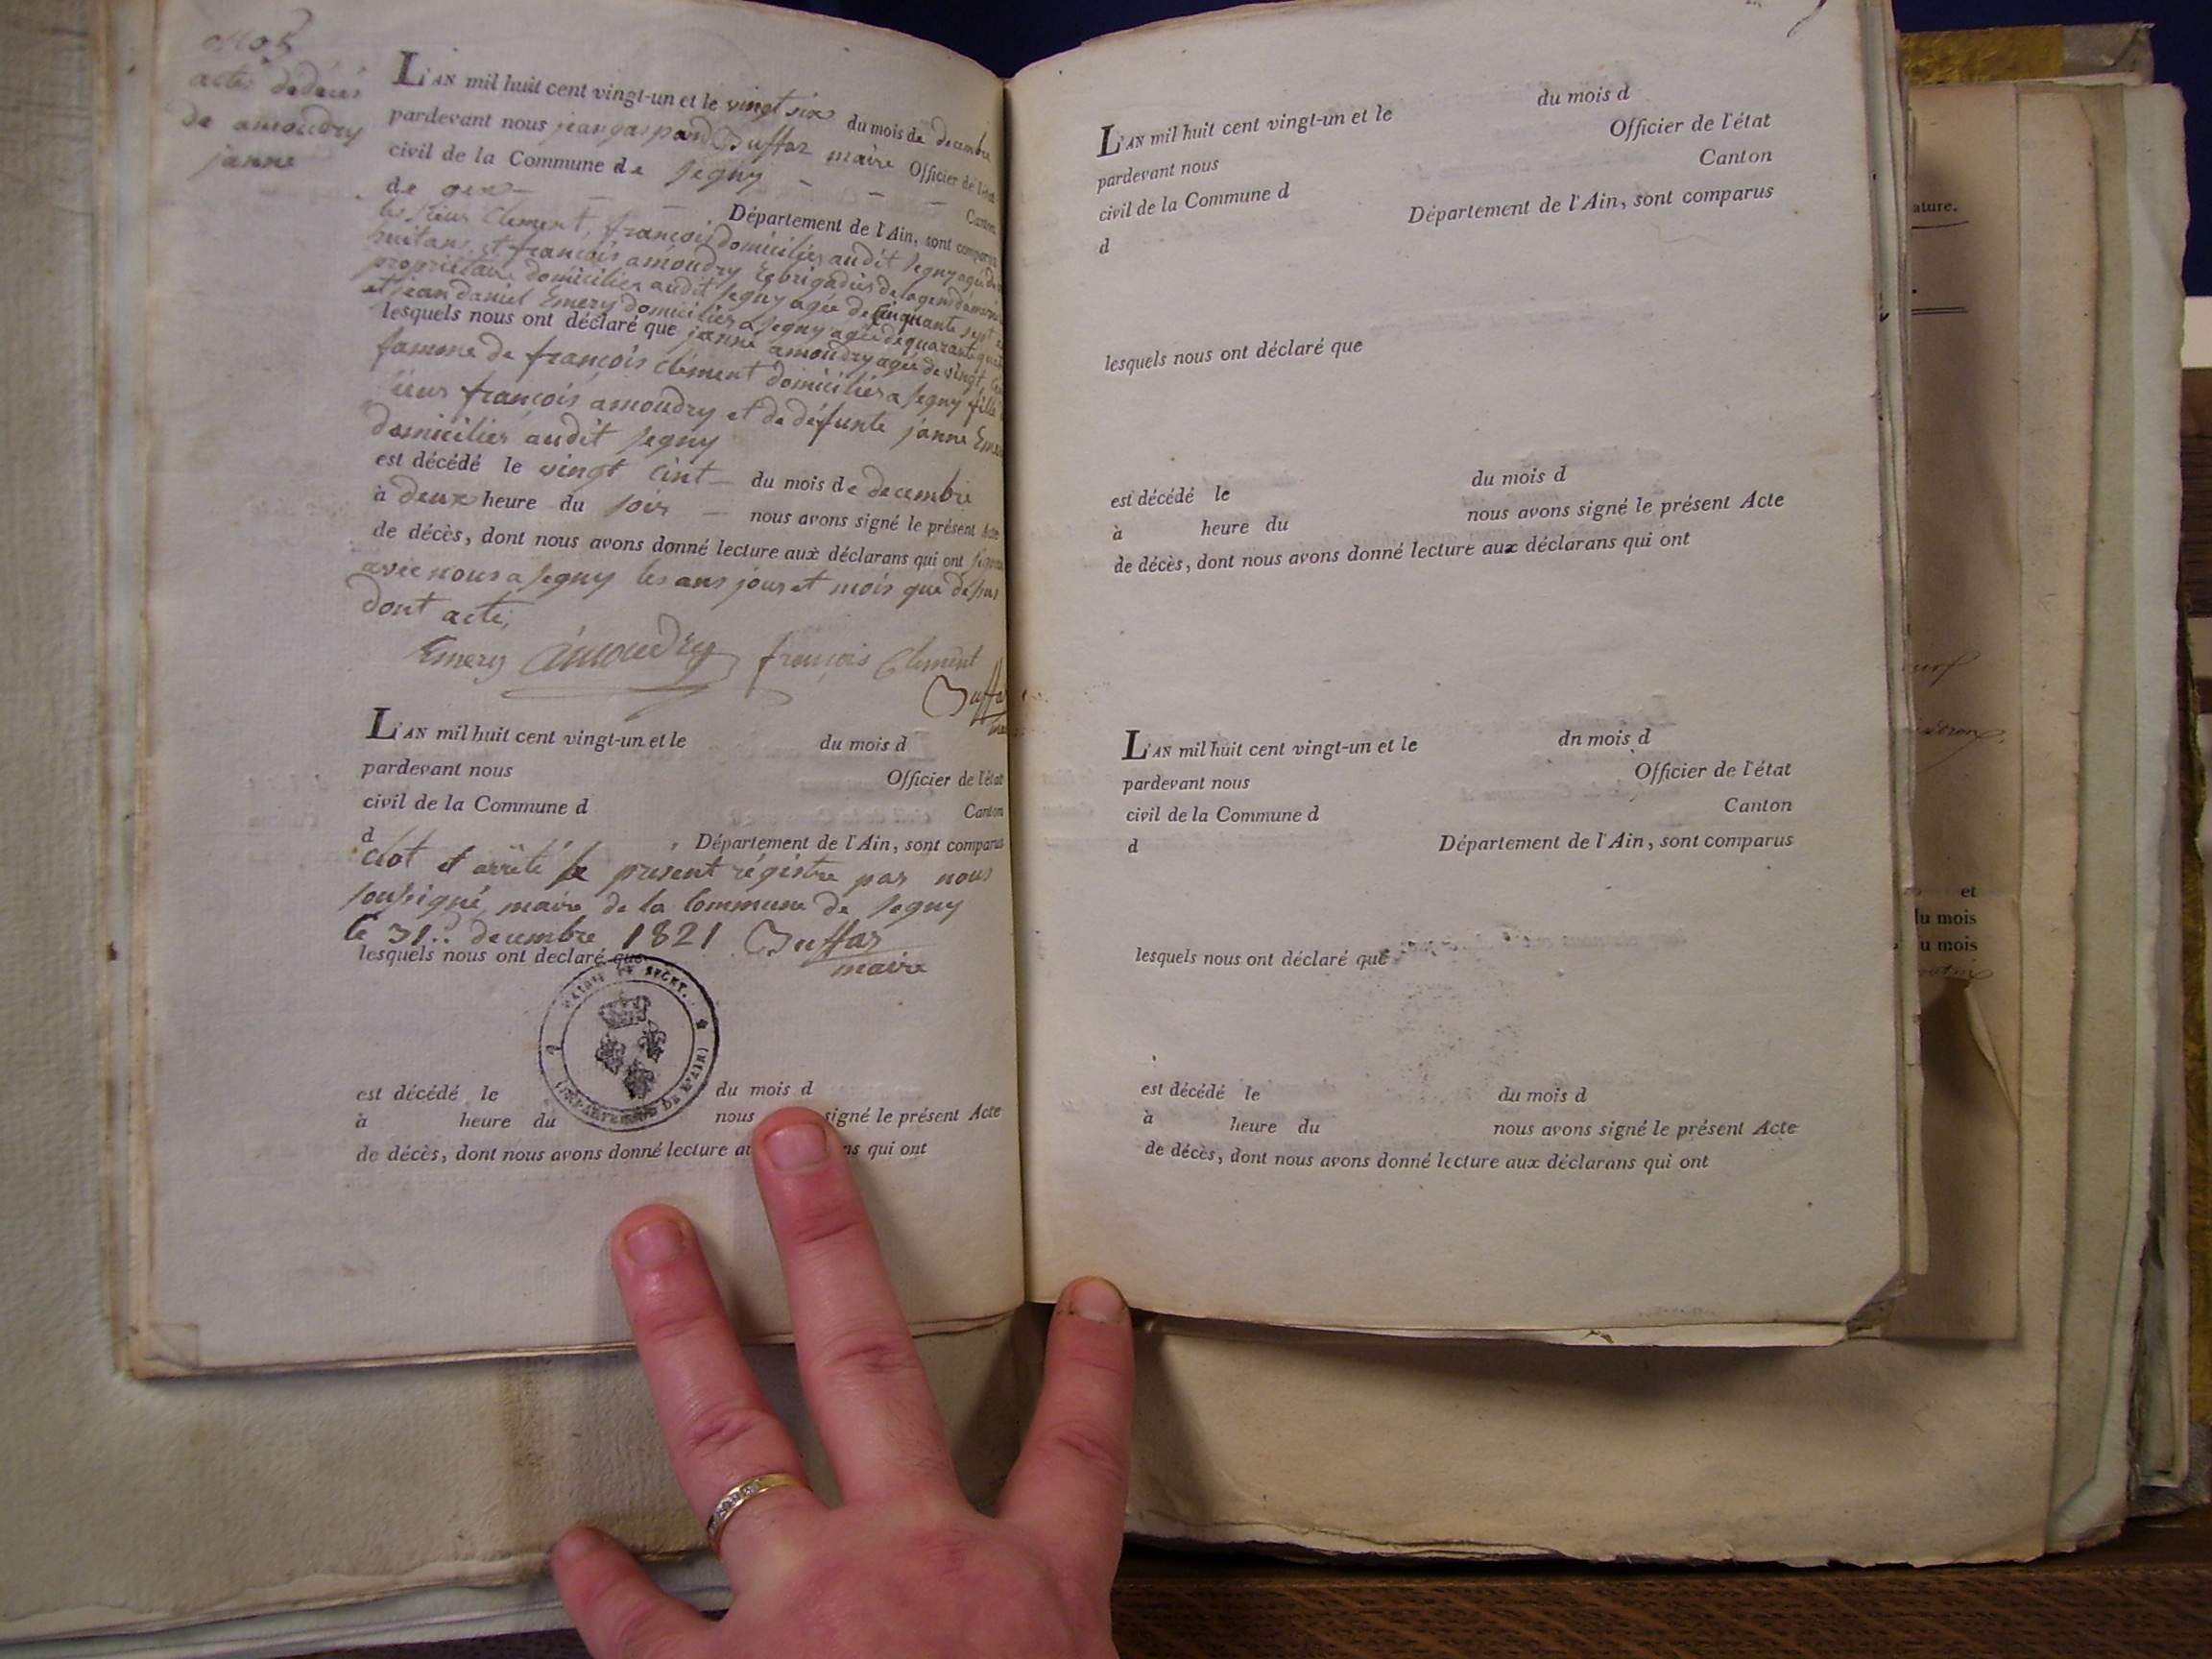 acte de décès
de amoudry
janne
L'AN mil huit cent vingt-un et le vingt six du mois de decembre
pardevant nous jean gaspard Buffaz maire Officier de l'état
civil de la Commune de Segny - - -
de gex - - Canton
Département de l'Ain, sont comparus
les sieur Clement, françois domiciliés audit Segny agée de
huit ans, et françois amoudry Ex brigadier de la gendarmerie
propriétaire domiciliés audit Segny agée de Cinquante sept
et jean daniel Emery domiciliés a Segny agée de quarante
lesquels nous ont déclaré que janne amoudry agée de vingt
famme de françois clément domiciliés a Segny fille
sieur françois amoudry et de défunte janne Emery
domiciliés audit Segny
est décédé le vingt cint - du mois de decembre
à deux heure du soir - nous avons signé le présent Acte
de décès, dont nous avons donné lecture aux déclarans qui ont signé
avec nous a Segny les ans jour et mois que dessus
dont acte,
Emery amoudry françois Clement
Buffaz
L'AN mil huit cent vingt-un et le du mois d
pardevant nous Officier de l'état
civil de la Commune d Canton
d Département de l'Ain, sont comparus
clot et arrêté le présent régistre par nous
soussigné maire de la Commune de Segny
le 31.. decembre 1821 Buffaz
maire
lesquels nous ont déclaré que
MAIRIE DE SEGNY. (DÉPARTEMENT DE L'AIN)
est décédé le du mois d
à heure du nous signé le présent Acte
de décès, dont nous avons donné lecture au ns qui ont
L'AN mil huit cent vingt-un et le du mois d
pardevant nous Officier de l'état
civil de la Commune d Canton
d Département de l'Ain, sont comparus
lesquels nous ont déclaré que
est décédé le du mois d
à heure du nous avons signé le présent Acte
de décès, dont nous avons donné lecture aux déclarans qui ont
L'AN mil huit cent vingt-un et le dn mois d
pardevant nous Officier de l'état
civil de la Commune d Canton
d Département de l'Ain, sont comparus
lesquels nous ont déclaré que
est décédé le du mois d
à heure du nous avons signé le présent Acte
de décès, dont nous avons donné lecture aux déclarans qui ont
ature.
et
du mois
u mois